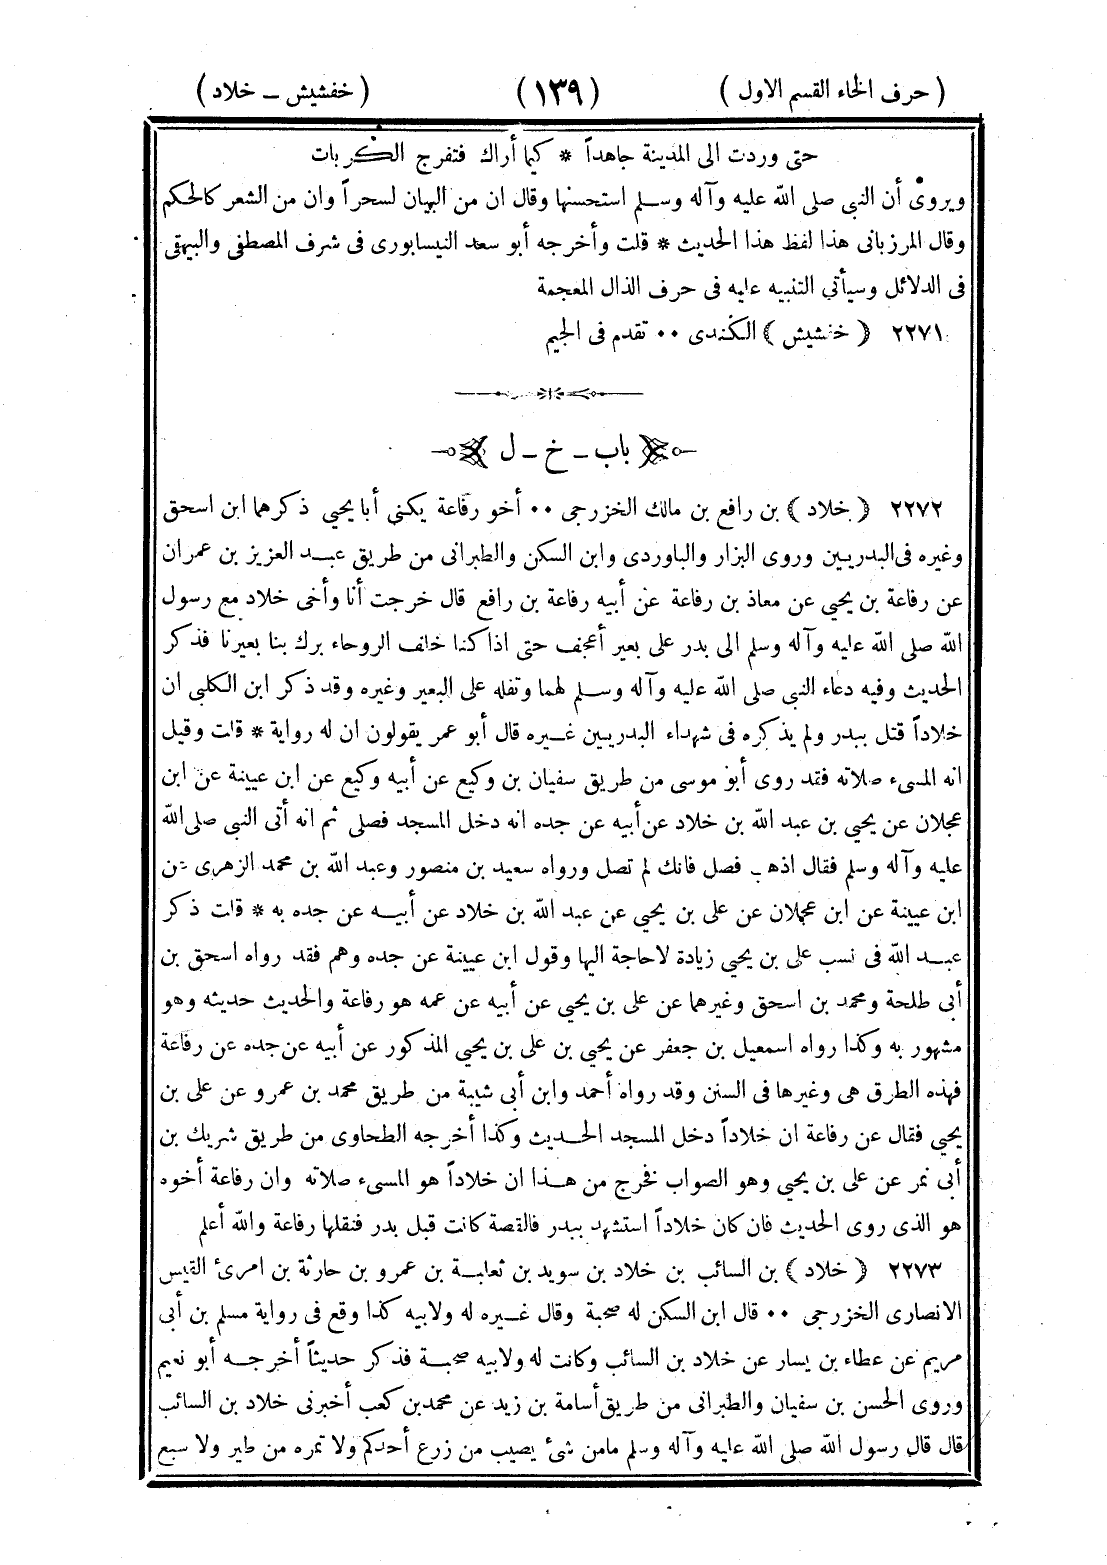 ( حرف الخاء القسم الاول ) (١٣٩) ( خفشيش ــ خلاد )
حتى وردت الى المدينة جاهداً * كيما أراك فتفرج الكربات
ويروى أن النبي صلى الله عليه وآله وسلم استحسنها وقال ان من البيان لسحراً وان من الشعر كالحكم
وقال المرزبانى هذا لفظ هذا الحديث * قلت وأخرجه أبو سعد النيسابورى فى شرف المصطفى والبيهقى
فى الدلائل وسيأتى التنبيه عليه فى حرف الذال المعجمة
٢٢٧١ ﴿ خفشيش ﴾ الكندى ٠٠ تقدم فى الجيم
باب ــ خ ــ ل
٢٢٧٢ ﴿ خلاد ﴾ بن رافع بن مالك الخزرجى ٠٠ أخو رفاعة يكنى أبا يحيى ذكرهما ابن اسحق
وغيره فى البدريين وروى البزار والباوردى وابن السكن والطبرانى من طريق عبد العزيز بن عمران
عن رفاعة بن يحيى عن معاذ بن رفاعة عن أبيه رفاعة بن رافع قال خرجت أنا وأخى خلاد مع رسول
الله صلى الله عليه وآله وسلم الى بدر على بعير أعجف حتى اذا كنا خلف الروحاء برك بنا بعيرنا فذكر
الحديث وفيه دعاء النبي صلى الله عليه وآله وسلم لهما وتفله على البعير وغيره وقد ذكر ابن الكلبى ان
خلاداً قتل ببدر ولم يذكره فى شهداء البدريين غيره قال أبو عمر يقولون ان له رواية * قلت وقيل
انه المسىء صلاته فقد روى أبو موسى من طريق سفيان بن وكيع عن أبيه وكيع عن ابن عيينة عن ابن
عجلان عن يحيى بن عبد الله بن خلاد عن أبيه عن جده انه دخل المسجد فصلى ثم انه أتى النبي صلى الله
عليه وآله وسلم فقال اذهب فصل فانك لم تصل ورواه سعيد بن منصور وعبد الله بن محمد الزهرى عن
ابن عيينة عن ابن عجلان عن على بن يحيى عن عبد الله بن خلاد عن أبيه عن جده به * قلت ذكر
عبد الله فى نسب على بن يحيى زيادة لا حاجة اليها وقول ابن عيينة عن جده وهم فقد رواه اسحق بن
أبى طلحة ومحمد بن اسحق وغيرهما عن على بن يحيى عن أبيه عن عمه هو رفاعة والحديث حديثه وهو
مشهور به وكذا رواه اسمعيل بن جعفر عن يحيى بن على بن يحيى المذكور عن أبيه عن جده عن رفاعة
فهذه الطرق هى وغيرها فى السنن وقد رواه أحمد وابن أبى شيبة من طريق محمد بن عمرو عن على بن
يحيى فقال عن رفاعة ان خلاداً دخل المسجد الحديث وكذا أخرجه الطحاوى من طريق شريك بن
أبى نمر عن على بن يحيى وهو الصواب فخرج من هذا ان خلاداً هو المسىء صلاته وان رفاعة أخوه
هو الذى روى الحديث فان كان خلاداً استشهد ببدر فالقصة كانت قبل بدر فنقلها رفاعة والله أعلم
٢٢٧٣ ﴿ خلاد ﴾ بن السائب بن خلاد بن سويد بن ثعلبة بن عمرو بن حارثة بن امرئ القيس
الانصارى الخزرجى ٠٠ قال ابن السكن له صحبة وقال غيره له ولابيه كذا وقع فى رواية مسلم بن أبى
مريم عن عطاء بن يسار عن خلاد بن السائب وكانت له ولابيه صحبة فذكر حديثاً أخرجه أبو نعيم
وروى الحسن بن سفيان والطبرانى من طريق أسامة بن زيد عن محمد بن كعب أخبرنى خلاد بن السائب
قال قال رسول الله صلى الله عليه وآله وسلم مامن شئ يصيب من زرع أحدكم ولا تمره من طير ولا سبع